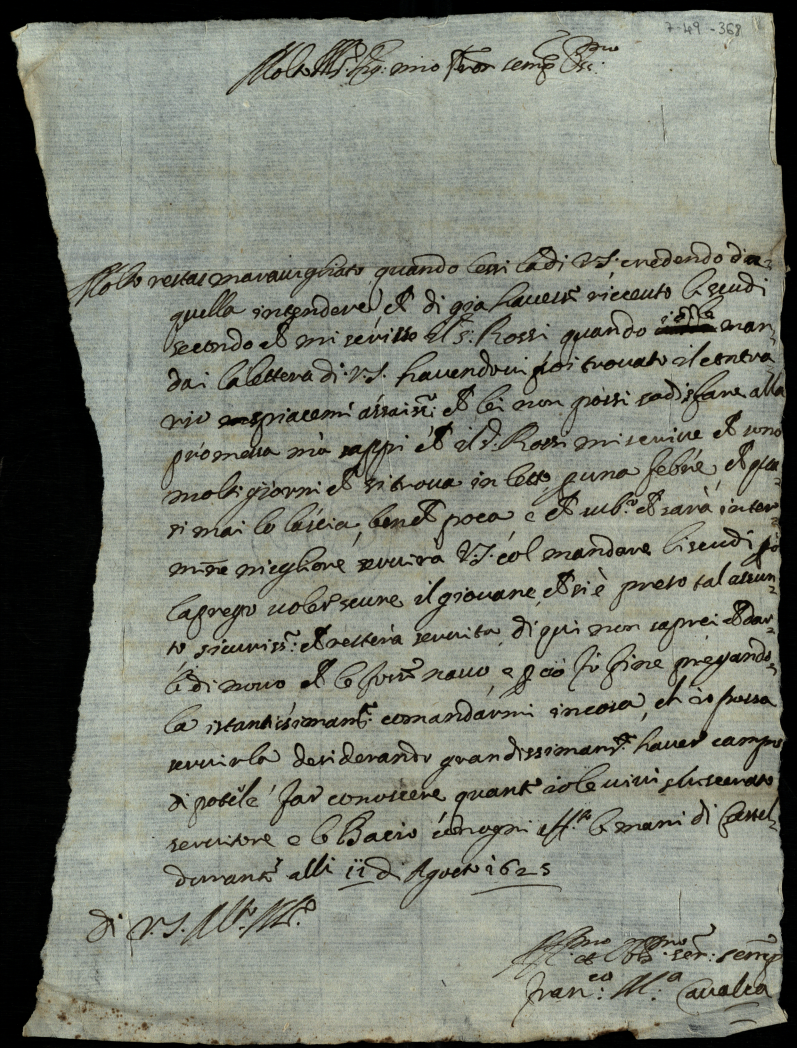 7-49-368
Molto Ill.re Sig.r mio semp.
Molto restai maravigliato quando lessi la di V.S. credendo da
quella intendere, ch di gia havesse riceuto li scudi
secondo ch mi scrisse il S.r Rossi quando man-
dai la lettera di V.S. havendovi poi trovato il contra-
rio spiacemi assaiss.e ch lei non possi sodisfare alla
promessa mà sappi ch il S. Rossi mi scrive ch sono
molti giorni ch si trova in letto p una febre, ch qua-
si mai lo lascia, bench poca e ch sub.o ch sarà
megliore servirà V.S. col mandare li scudi
la prego voler scusare il giovane ch si è preso tal assun-
to, sicuriss.o ch resterà servita, di qui non saprei ch dar-
le di novo e p ciò fò fine pregando-
la istantissimam.te comandarmi in cosa, ch io possa
servirla desiderando grandissimam.te haver campo
di poterle far conoscere quanto io le vivi sviscerato
servitore e le Bacio con ogni aff.to le mani di Castel-
durante alli 11 d Agosto 1625
di V.S. Molto Ill.re
Aff.mo et Obb.mo ser: semp
Fran.co M.a Cavalca